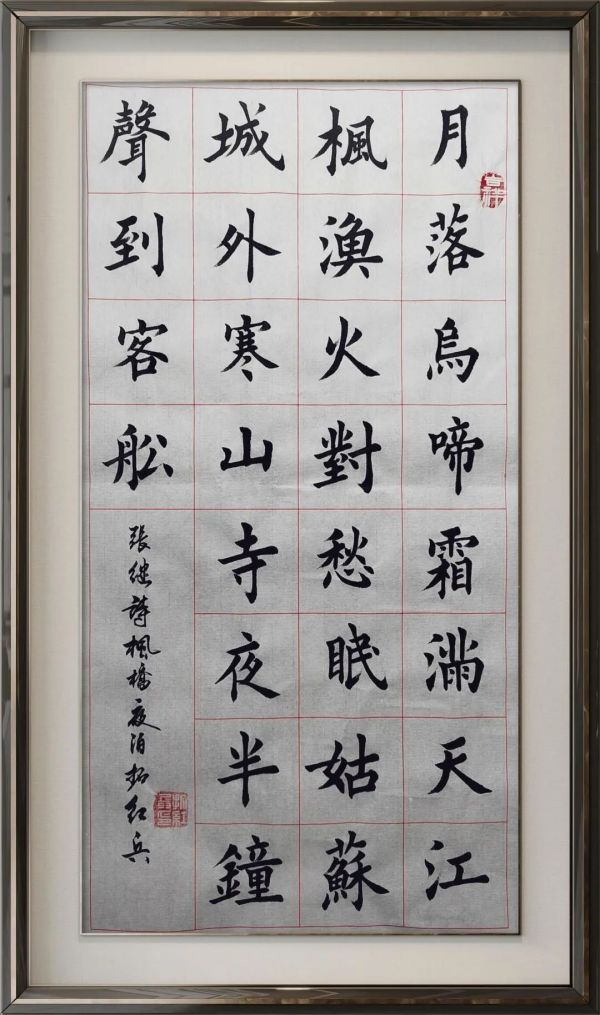 月落烏啼霜滿天江
楓漁火對愁眠姑蘇
城外寒山寺夜半鐘
聲到客船
張继詩楓橋夜泊拓红兵